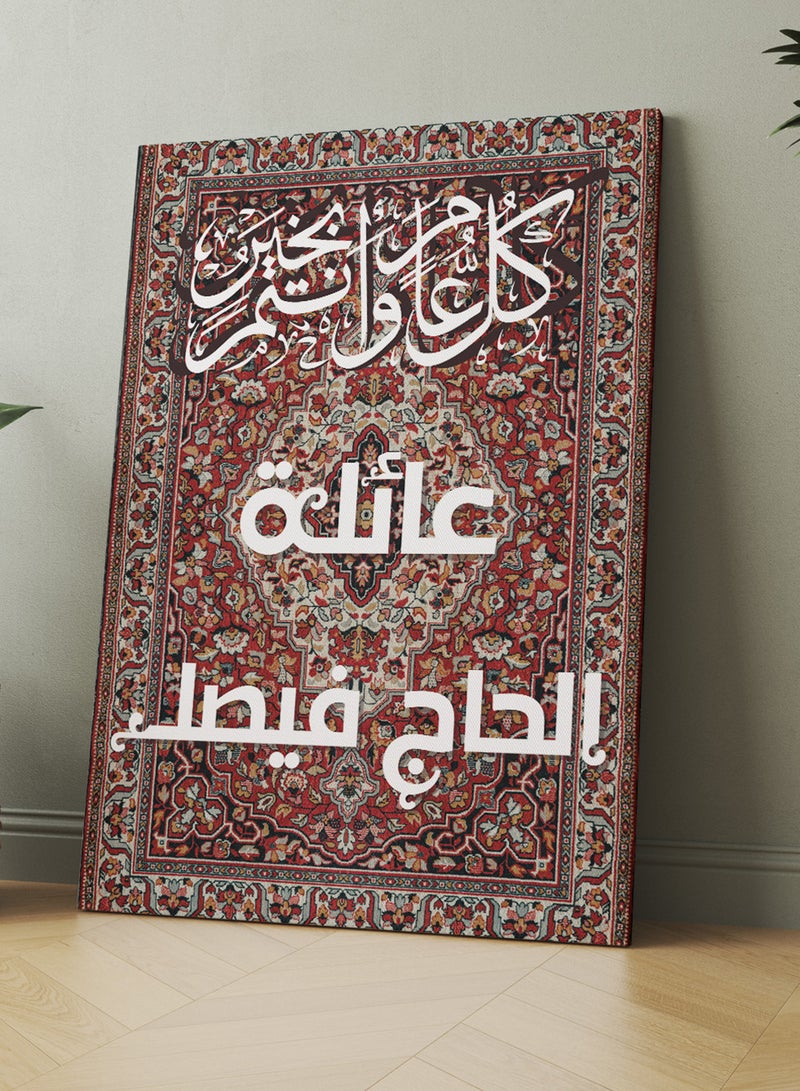 كل عام وانتم بخير
عائلة
الحاج فيصل